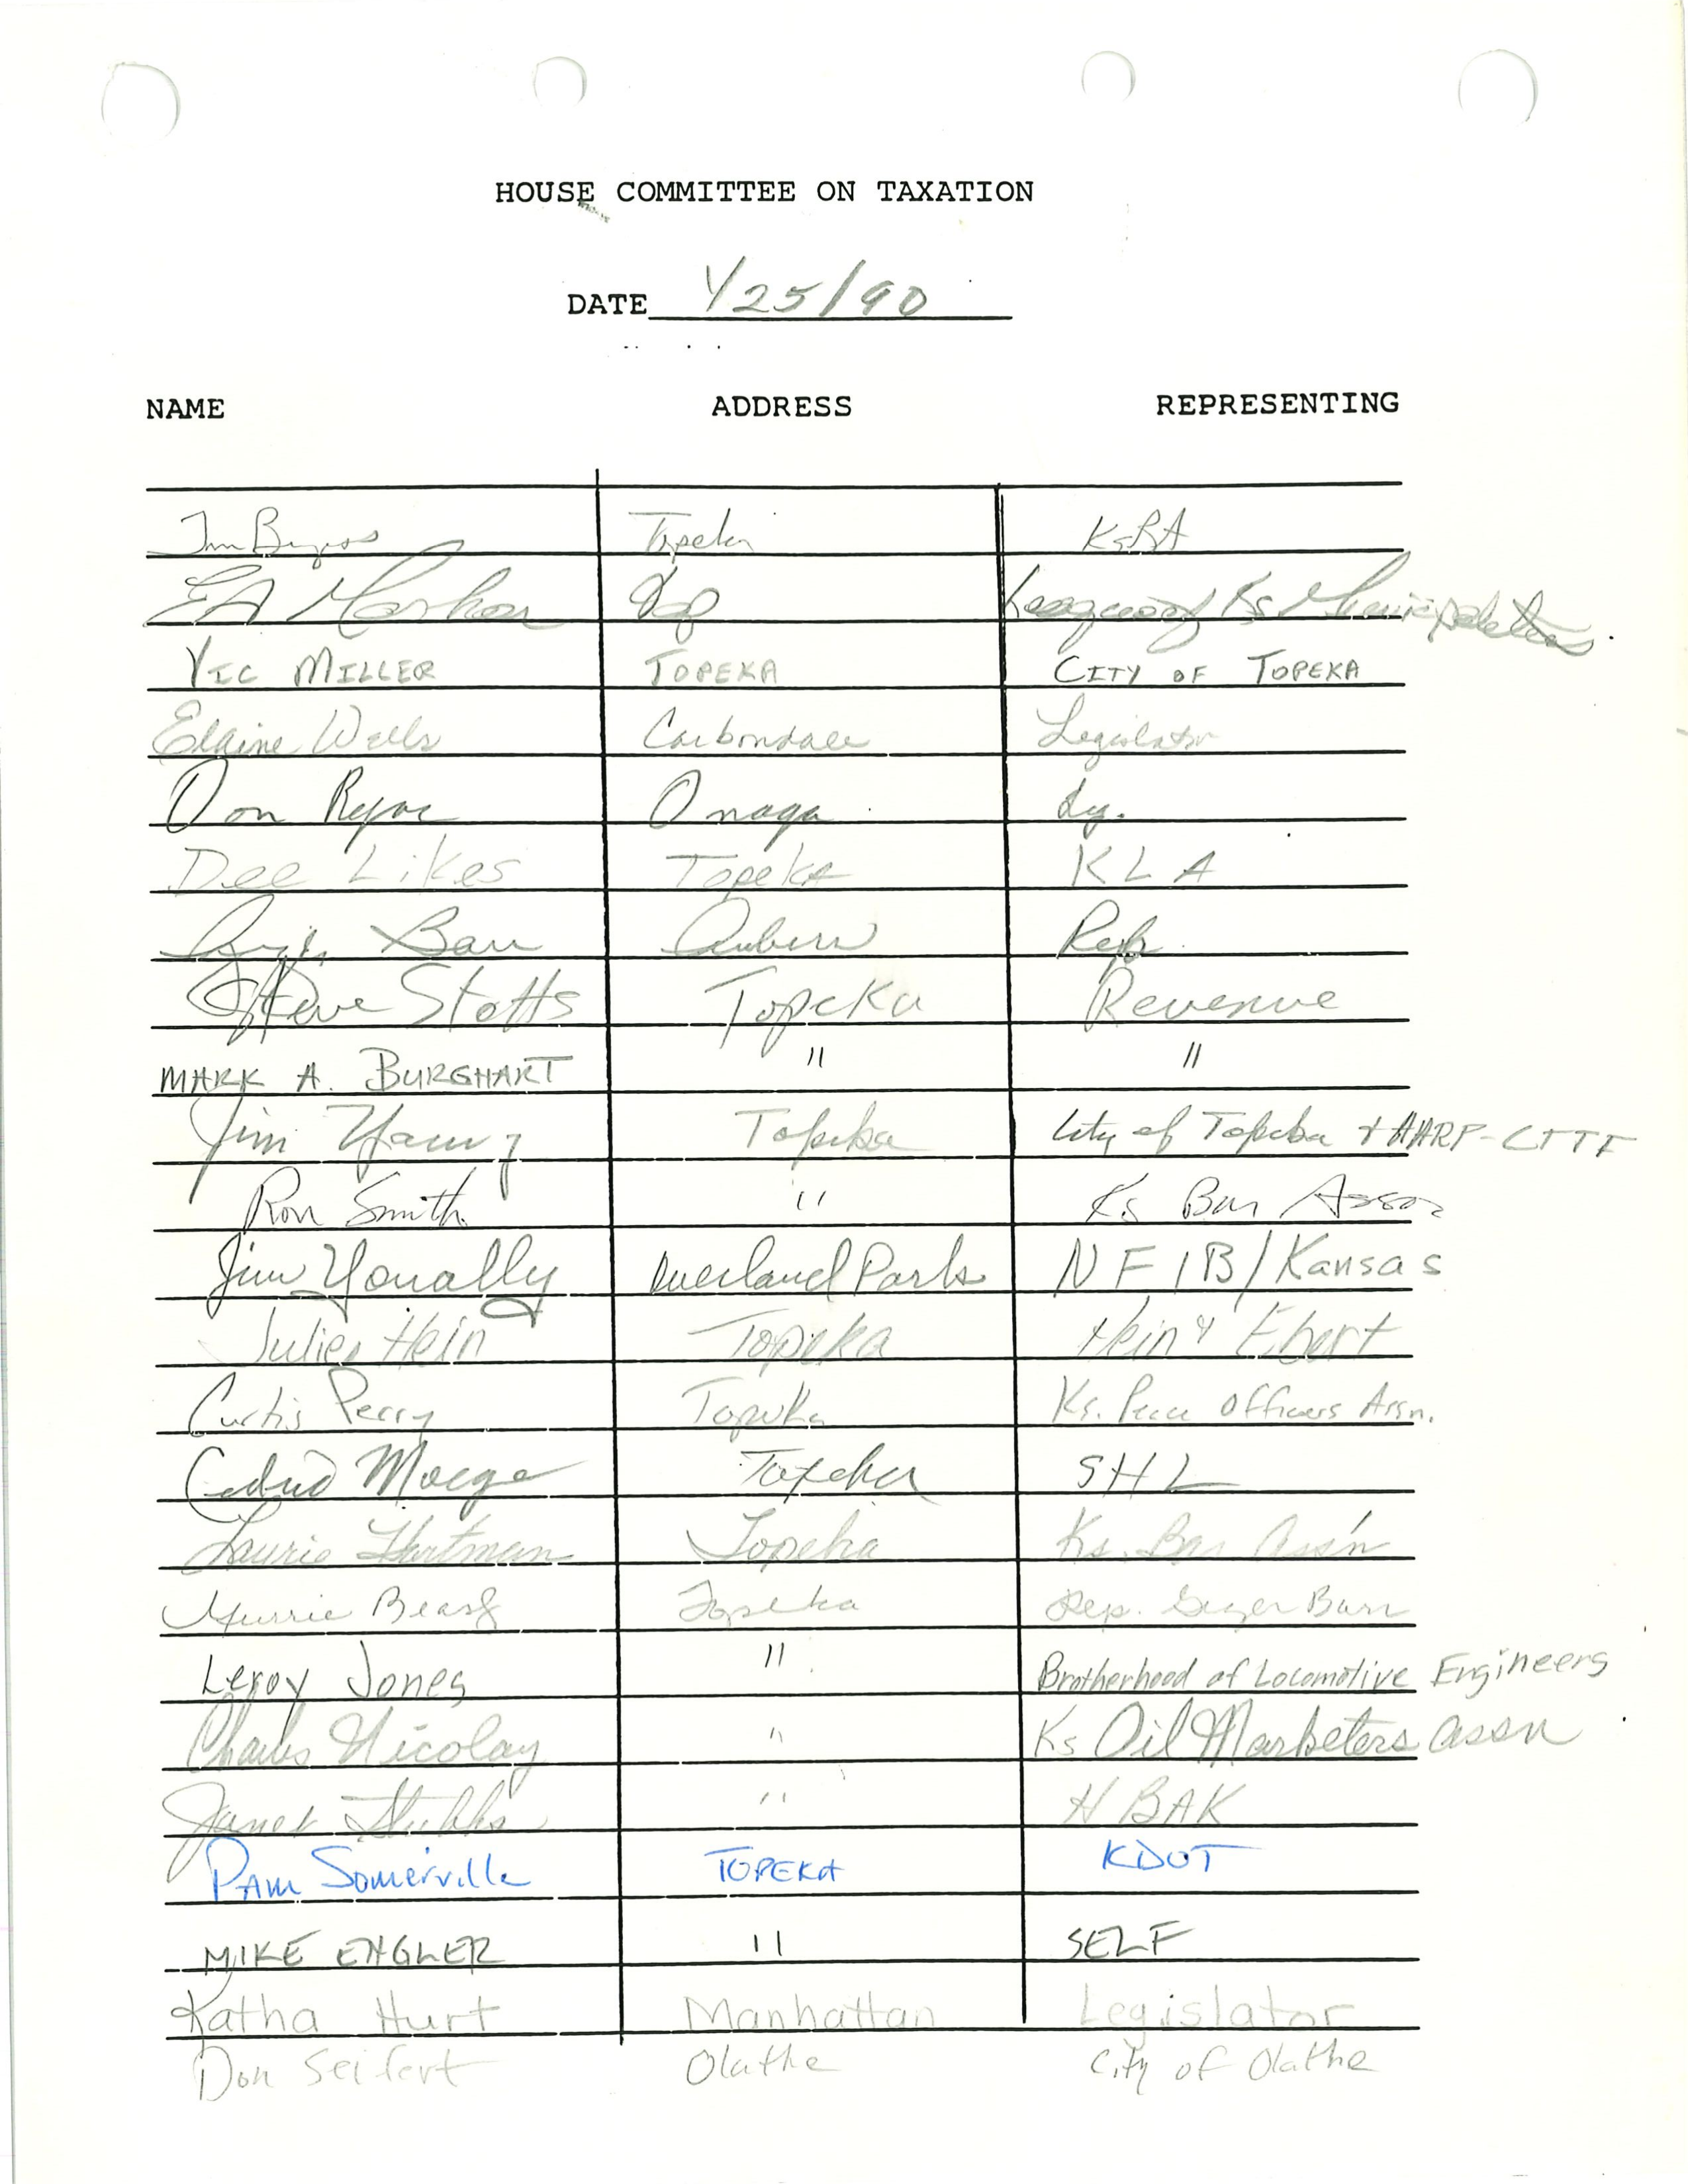 HOUSE COMMITTEE ON TAXATION
DATE 1/25/90
NAME ADDRESS REPRESENTING
Topeka KsBA
Top League of Ks Municipalities
VIC MILLER TOPEKA CITY OF TOPEKA
Elaine Wells Carbondale Legislator
Don Onaga Leg.
Dee Likes Topeka KLA
Auburn Rep.
Steve Stotts Topeka Revenue
MARK A. BURGHART " "
Jim Topeka City of Topeka + AARP-CTTF
Ron Smith " Ks Bar Assoc
Jim Yonally Overland Park NFIB/Kansas
Julie Hein Topeka Hein & Ebert
Curtis Perry Topeka Ks. Peace Officers Assn.
Topeka SHL
Laurie Hartman Topeka Ks. Bar Ass'n
Topeka Rep. Ginger Barr
Leroy Jones " Brotherhood of Locomotive Engineers
Charles Nicolay " Ks Oil Marketers Assn
Janet Stubbs " HBAK
PAM Somerville TOPEKA KDOT
MIKE ENGLER " SELF
Katha Hurt Manhattan Legislator
Don Seifert Olathe City of Olathe